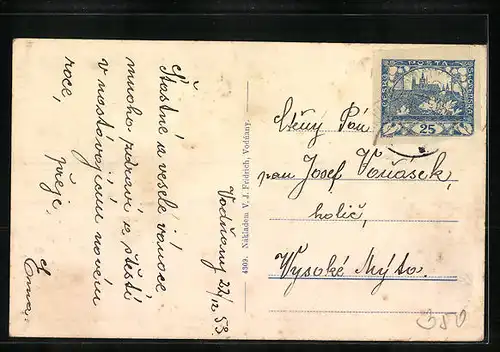 Šťastné a veselé vánoce
mnoho zdraví a štěstí
v nastávajícím novém
roce,
přeje,
Vodňany 22/12
4309. Nákladem V. J. Fridrich, Vodňany.
POŠTA
ČESKO
SLOVENSKÁ
25
Ctěný Pán
pan Josef Vaňásek,
holič,
Vysoké Mýto.
350